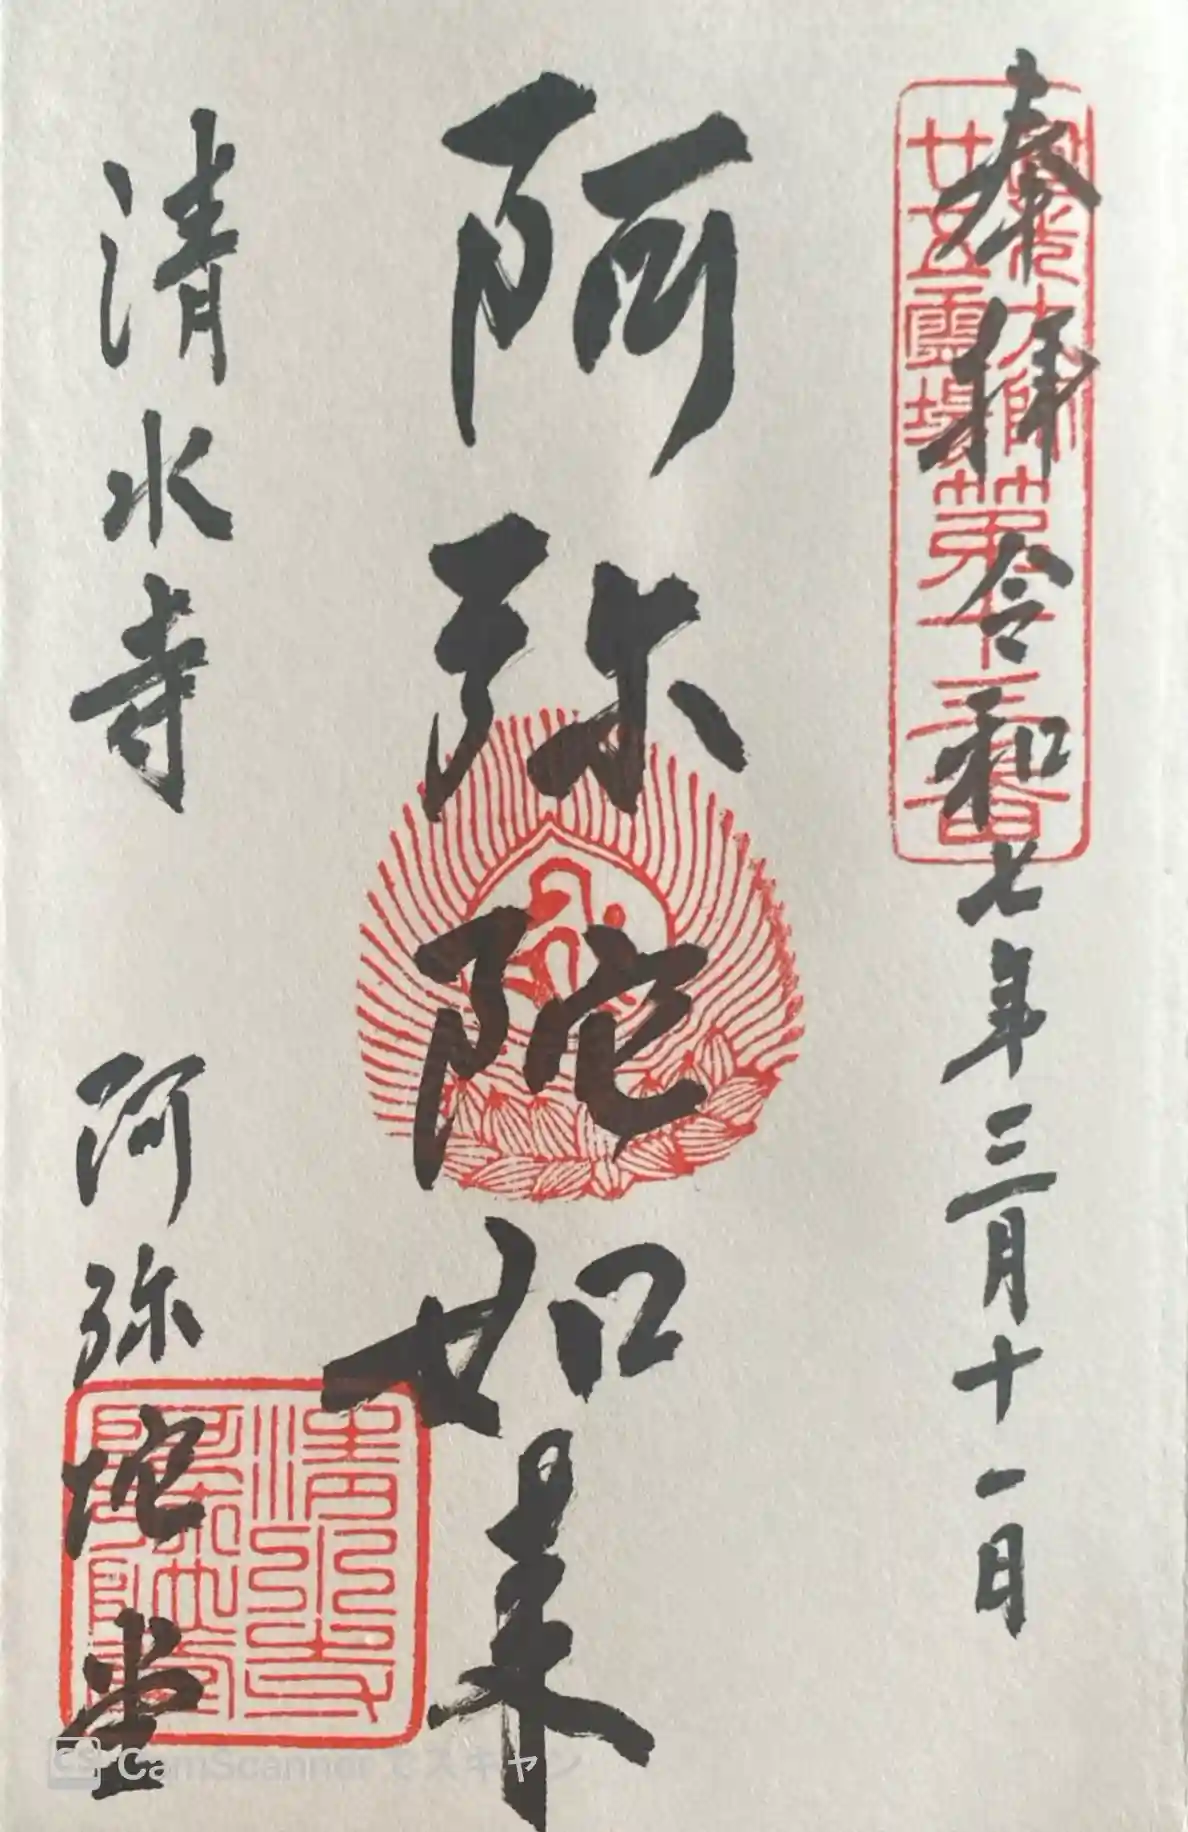 奉拝 令和七年三月十一日
圓光大師
廿五霊場
第十三番
阿弥陀如来
清水寺 阿弥陀堂
清水寺
阿弥陀堂
CS CamScannerでスキャン